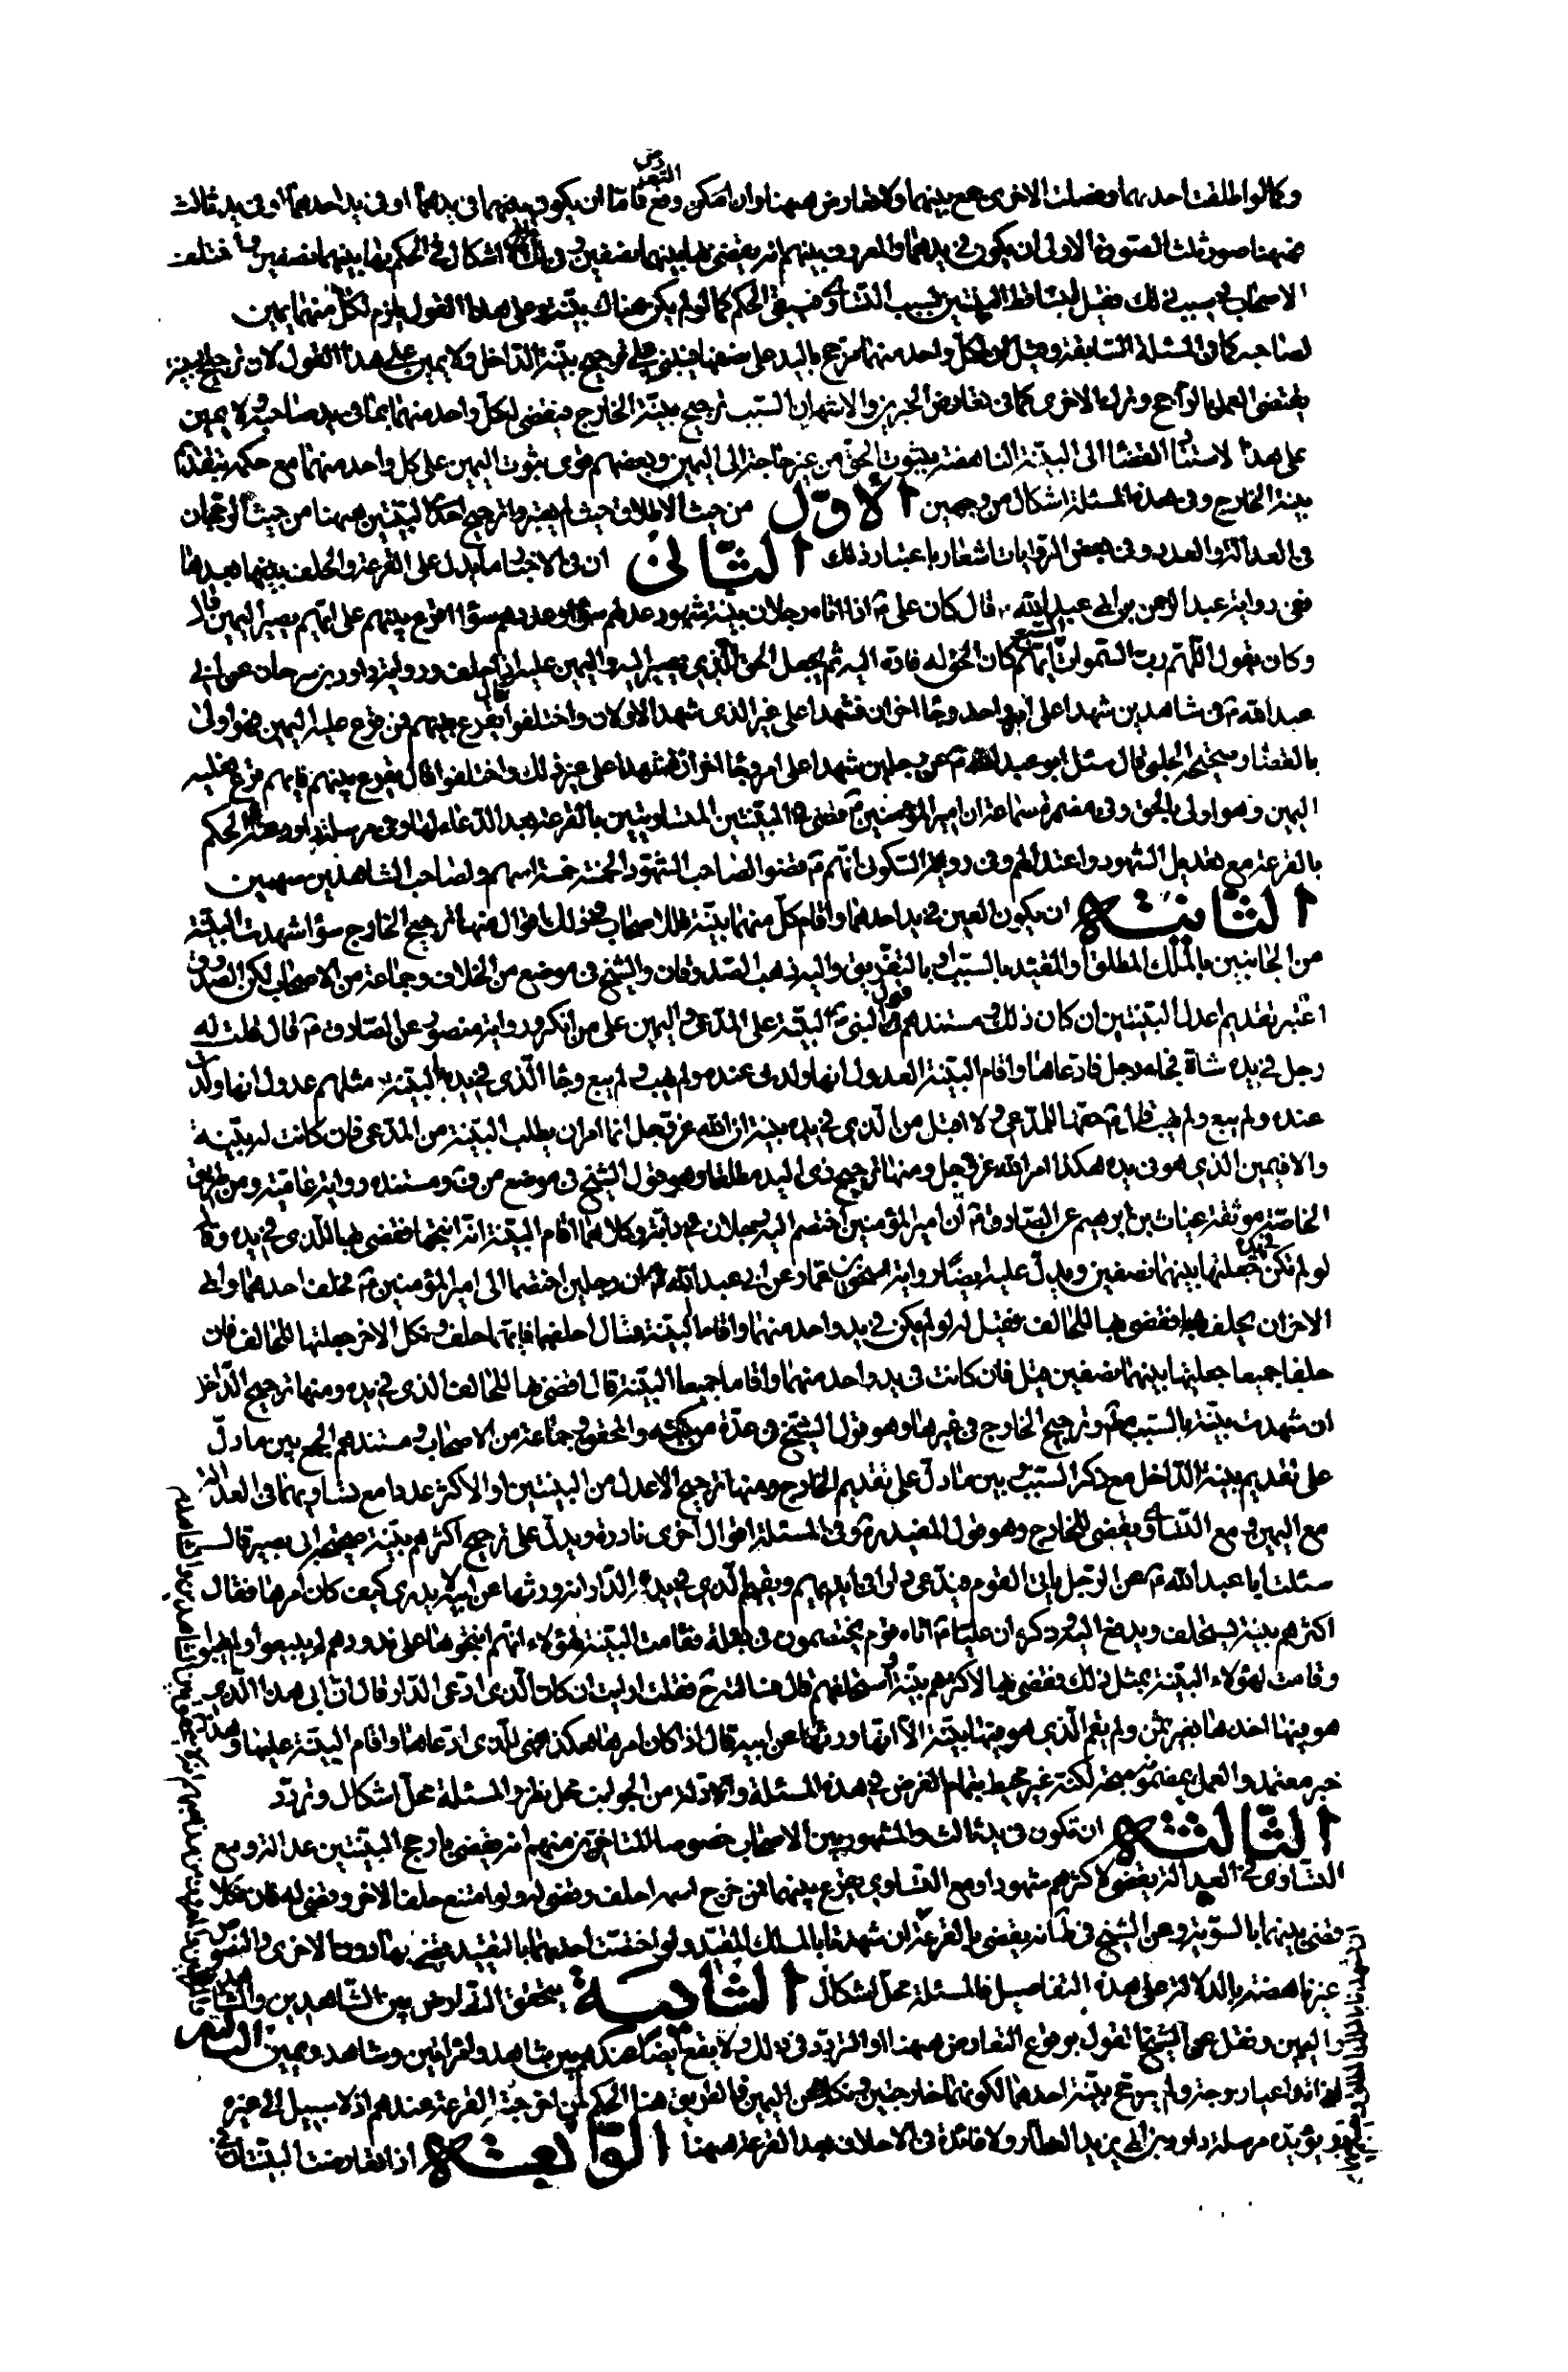 وكما لو اطلقت احديهما وفصلت الاخرى جمع بينهما ولا تعارض هيهنا وان امكن وقع التعارض فاما ان يكون بينهما في يدهما او في يد احدهما او في يد ثالث
فهيهنا صور ثلث الصورة الاولى ان يكون في يدهما والمعروف بينهم انه يقضى بها بينهما نصفين اشكال في الحكم بها بينهما نصفين واختلف
الاصحاب في سبب ذلك فقيل لتساقط البينتين بسبب التساوي فيبقى الحكم كما لو لم يكن هناك بينة وعلى هذا القول يلزم لكل منهما يمين
لصاحبه كما في المسئلة السابقة وقيل لان لكل واحد منهما مرجح باليد على نصفها فيبنى على ترجيح بينة الداخل ولا يمين على هذا القول لان ترجيح البينة
يقتضى العمل بالراجح وترك الاخرى كما في تعارض الخبرين والاشهر ان السبب ترجيح بينة الخارج فيقضى لكل واحد منهما بما في يد صاحبه ولا يمين
على هذا لاستناد القضاء الى البينة الناهضة بثبوت الحق من غير حاجة الى اليمين وبعضهم قوى ثبوت اليمين على كل واحد منهما مع حكمه بتقديم
بينة الخارج وفي هذه المسئلة اشكال من وجهين الأول من حيث الاطلاق حيث لم يعتبروا ترجيح احد البينتين هيهنا من حيث الرجحان
في العدالة والعدد وفي بعض الروايات اشعار باعتبار ذلك الثاني ان في الاخبار ما يدل على القرعة والحلف بينهما بعدها
ففي رواية عبد الرحمن بن ابي عبد الله قال كان علي ع اذا اتاه رجلان ببينة شهود عدلهم سواء وعددهم سواء اقرع بينهم على ايهم يصير اليمين قال
وكان يقول اللهم رب السموات السبع ايهم كان الحق له فاده اليه ثم يجعل الحق للذي يصير اليه اليمين عليه اذا حلف ورواية داود بن سرحان عن ابي
عبد الله ع في شاهدين شهدا على امر واحد وجاء اخران فشهدا على غير الذى شهد الاولان واختلفوا قال يقرع بينهم فمن قرع عليه اليمين فهو اولى
بالقضاء وصحيحة الحلبي قال سئل ابو عبد الله ع عن رجلين شهدا على امر وجاء اخران فشهدا على غير ذلك واختلفوا قال يقرع بينهم فايهم قرع فعليه
اليمين وهو اولى بالحق وفي مضمرة سماعة ان امير المؤمنين ع قضى في البينتين المتساويتين بالقرعة بعد الدعاء لها وفي مرسلة داود الحكم
بالقرعة مع تعديل الشهود واعتدالهم وفي رواية السكوني انهم ع قضوا لصاحب الشهود الخمسة خمسة اسهم ولصاحب الشاهدين سهمين
الثانية ان يكون العين في يد احدهما واقام كل منهما بينة فللاصحاب في ذلك اقوال منها ترجيح الخارج سواء شهدت البينة
من الجانبين بالملك المطلق او المقيد بالسبب او بالتفريق واليه ذهب الصدوقان والشيخ في موضع من الخلاف وجماعة من الاصحاب لكن الصدوق
اعتبر تقديم اعدل البينتين ان كان ذلك ومستندهم قول النبي ص البينة على المدعى واليمين على من انكر ورواية منصور عن الصادق ع قال قلت له
رجل في يده شاة فجاء رجل فادعاها واقام البينة العدول انها ولدت عنده ولم يهب ولم يبع وجاء الذي في يده بالبينة مثلهم عدول انها ولدت
عنده ولم يبع ولم يهب قال ع حقها للمدعى ولا اقبل من الذي في يده بينة لان الله عز وجل انما امر ان يطلب البينة من المدعى فان كانت له بينة
والا فيمين الذي هو في يده هكذا امر الله عز وجل ومنها ترجيح ذي اليد مطلقا وهو قول الشيخ في موضع من ف ومستنده رواية عامية ومن طريق
الخاصة موثقة غياث بن ابراهيم عن الصادق ع ان امير المؤمنين اختصم اليه رجلان في دابة وكلاهما اقام البينة انه انتجها فقضى بها للذي في يده وقال
لو لم تكن في يده جعلتها بينهما نصفين ويدل عليه ايضا رواية اسحق بن عمار عن ابي عبد الله ع ان رجلين اختصما الى امير المؤمنين ع فحلف احدهما وابى
الاخر ان يحلف فقضى بها للحالف فقيل له لو لم يكن في يد واحد منهما واقاما البينة فقال احلفهما فايهما حلف ونكل الاخر جعلتها للحالف فان
حلفا جميعا جعلتها بينهما نصفين فقيل فان كانت في يد واحد منهما واقاما جميعا البينة قال اقضى بها للحالف الذى في يده ومنها ترجيح الداخل
ان شهدت بينته بالسبب وترجيح الخارج في غيرها وهو قول الشيخ في عدة من كتبه والمحقق وجماعة من الاصحاب ومستندهم الجمع بين ما دل
على تقديم بينة الداخل مع ذكر السبب وبين ما دل على تقديم الخارج ومنها ترجيح الاعدل من البينتين او الاكثر عددا مع تساويهما في العدالة
مع اليمين ومع التساوي يقضى للخارج وهو قول المفيد ره وفي المسئلة اقوال اخرى نادرة ويدل على ترجيح اكثرهم بينة صحيحة ابى بصير قال
سئلت ابا عبد الله ع عن الرجل ياتي القوم فيدعى دارا في ايديهم ويقيم الذي في يده الدار انه ورثها عن ابيه لا يدرى كيف كان امرها فقال
اكثرهم بينة يستحلف ويدفع اليه وذكر ان عليا ع اتاه قوم يختصمون في بغلة فقامت البينة لهؤلاء انهم انتجوها على مذودهم لم يبيعوا ولم يهبوا
وقامت لهؤلاء البينة بمثل ذلك فقضى بها لاكثرهم بينة واستحلفهم قال فسئلته ع فقلت ارايت ان كان الذى ادعى الدار قال ان ابى هذا الذي
هو فيها اخذها بغير ثمن ولم يقم الذي هو فيها بينة الا انه ورثها عن ابيه قال اذا كان امرها هكذا فهى للذى ادعاها واقام البينة عليها وهذا
خبر معتمد والعمل بمضمونه متجه لكنه غير محيط بتمام الغرض في هذه المسئلة من الجوانب محل نظر والمسئلة محل اشكال وتردد
الثالثة ان تكون في يد ثالث والمشهور بين الاصحاب خصوصا المتاخرين منهم انه يقضى بارجح البينتين عدالة ومع
التساوى في العدالة يقضى لاكثرهم شهودا ومع التساوي يقرع بينهما فمن خرج اسمه احلف وقضى له ولو امتنع حلف الاخر وقضى له فان نكلا
قضى بينهما بالسوية وعن الشيخ في ط انه يقضى بالقرعة ان شهدتا بالملك المقيد ولو اختصت احديهما بالتقييد قضى بها دون الاخرى والنصوص
غير ناهضة بالدلالة على هذه التفاصيل فالمسئلة محل اشكال الثالثة يتحقق التعارض بين الشاهدين والشاهد
واليمين ونقل عن الشيخ القول بوقوع التعارض هيهنا او التردد في ذلك ولا يقع ايضا عندهم بين شاهد وامراتين وشاهد ويمين
ولم يرجح بينة احدهما لكونهما خارجتين ونكلا عن اليمين فالطريق هنا الحكم لمن اخرجته القرعة عندهم اذ لا سبيل الى غيره
ويؤيده مرسلة داود بن ابي يزيد العطار ولا فائدة في الاحلاف بعد القرعة هيهنا الرابعة اذا تعارضت البينتان في